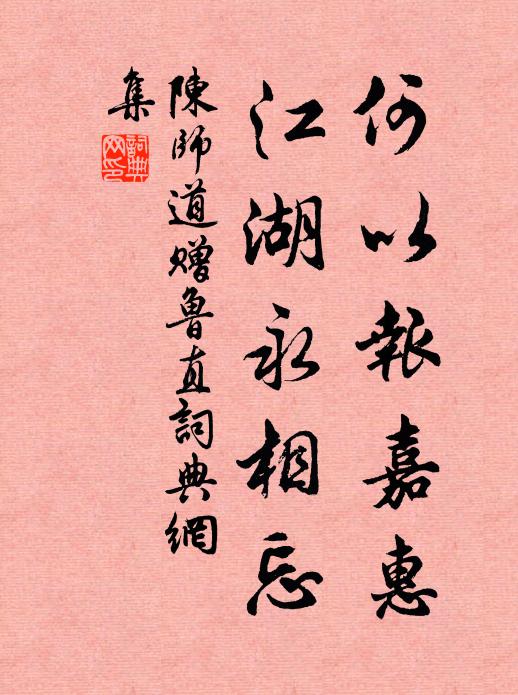 何以報嘉惠
江湖永相忘
陳師道贈魯直詞典網
集
詞典網印